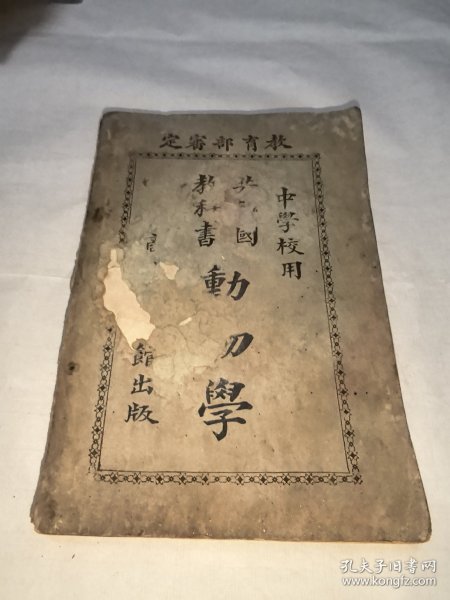 教育部審定
中學校用
共國
教科書
動學
館出版
孔夫子旧书网
www.kongfz.com